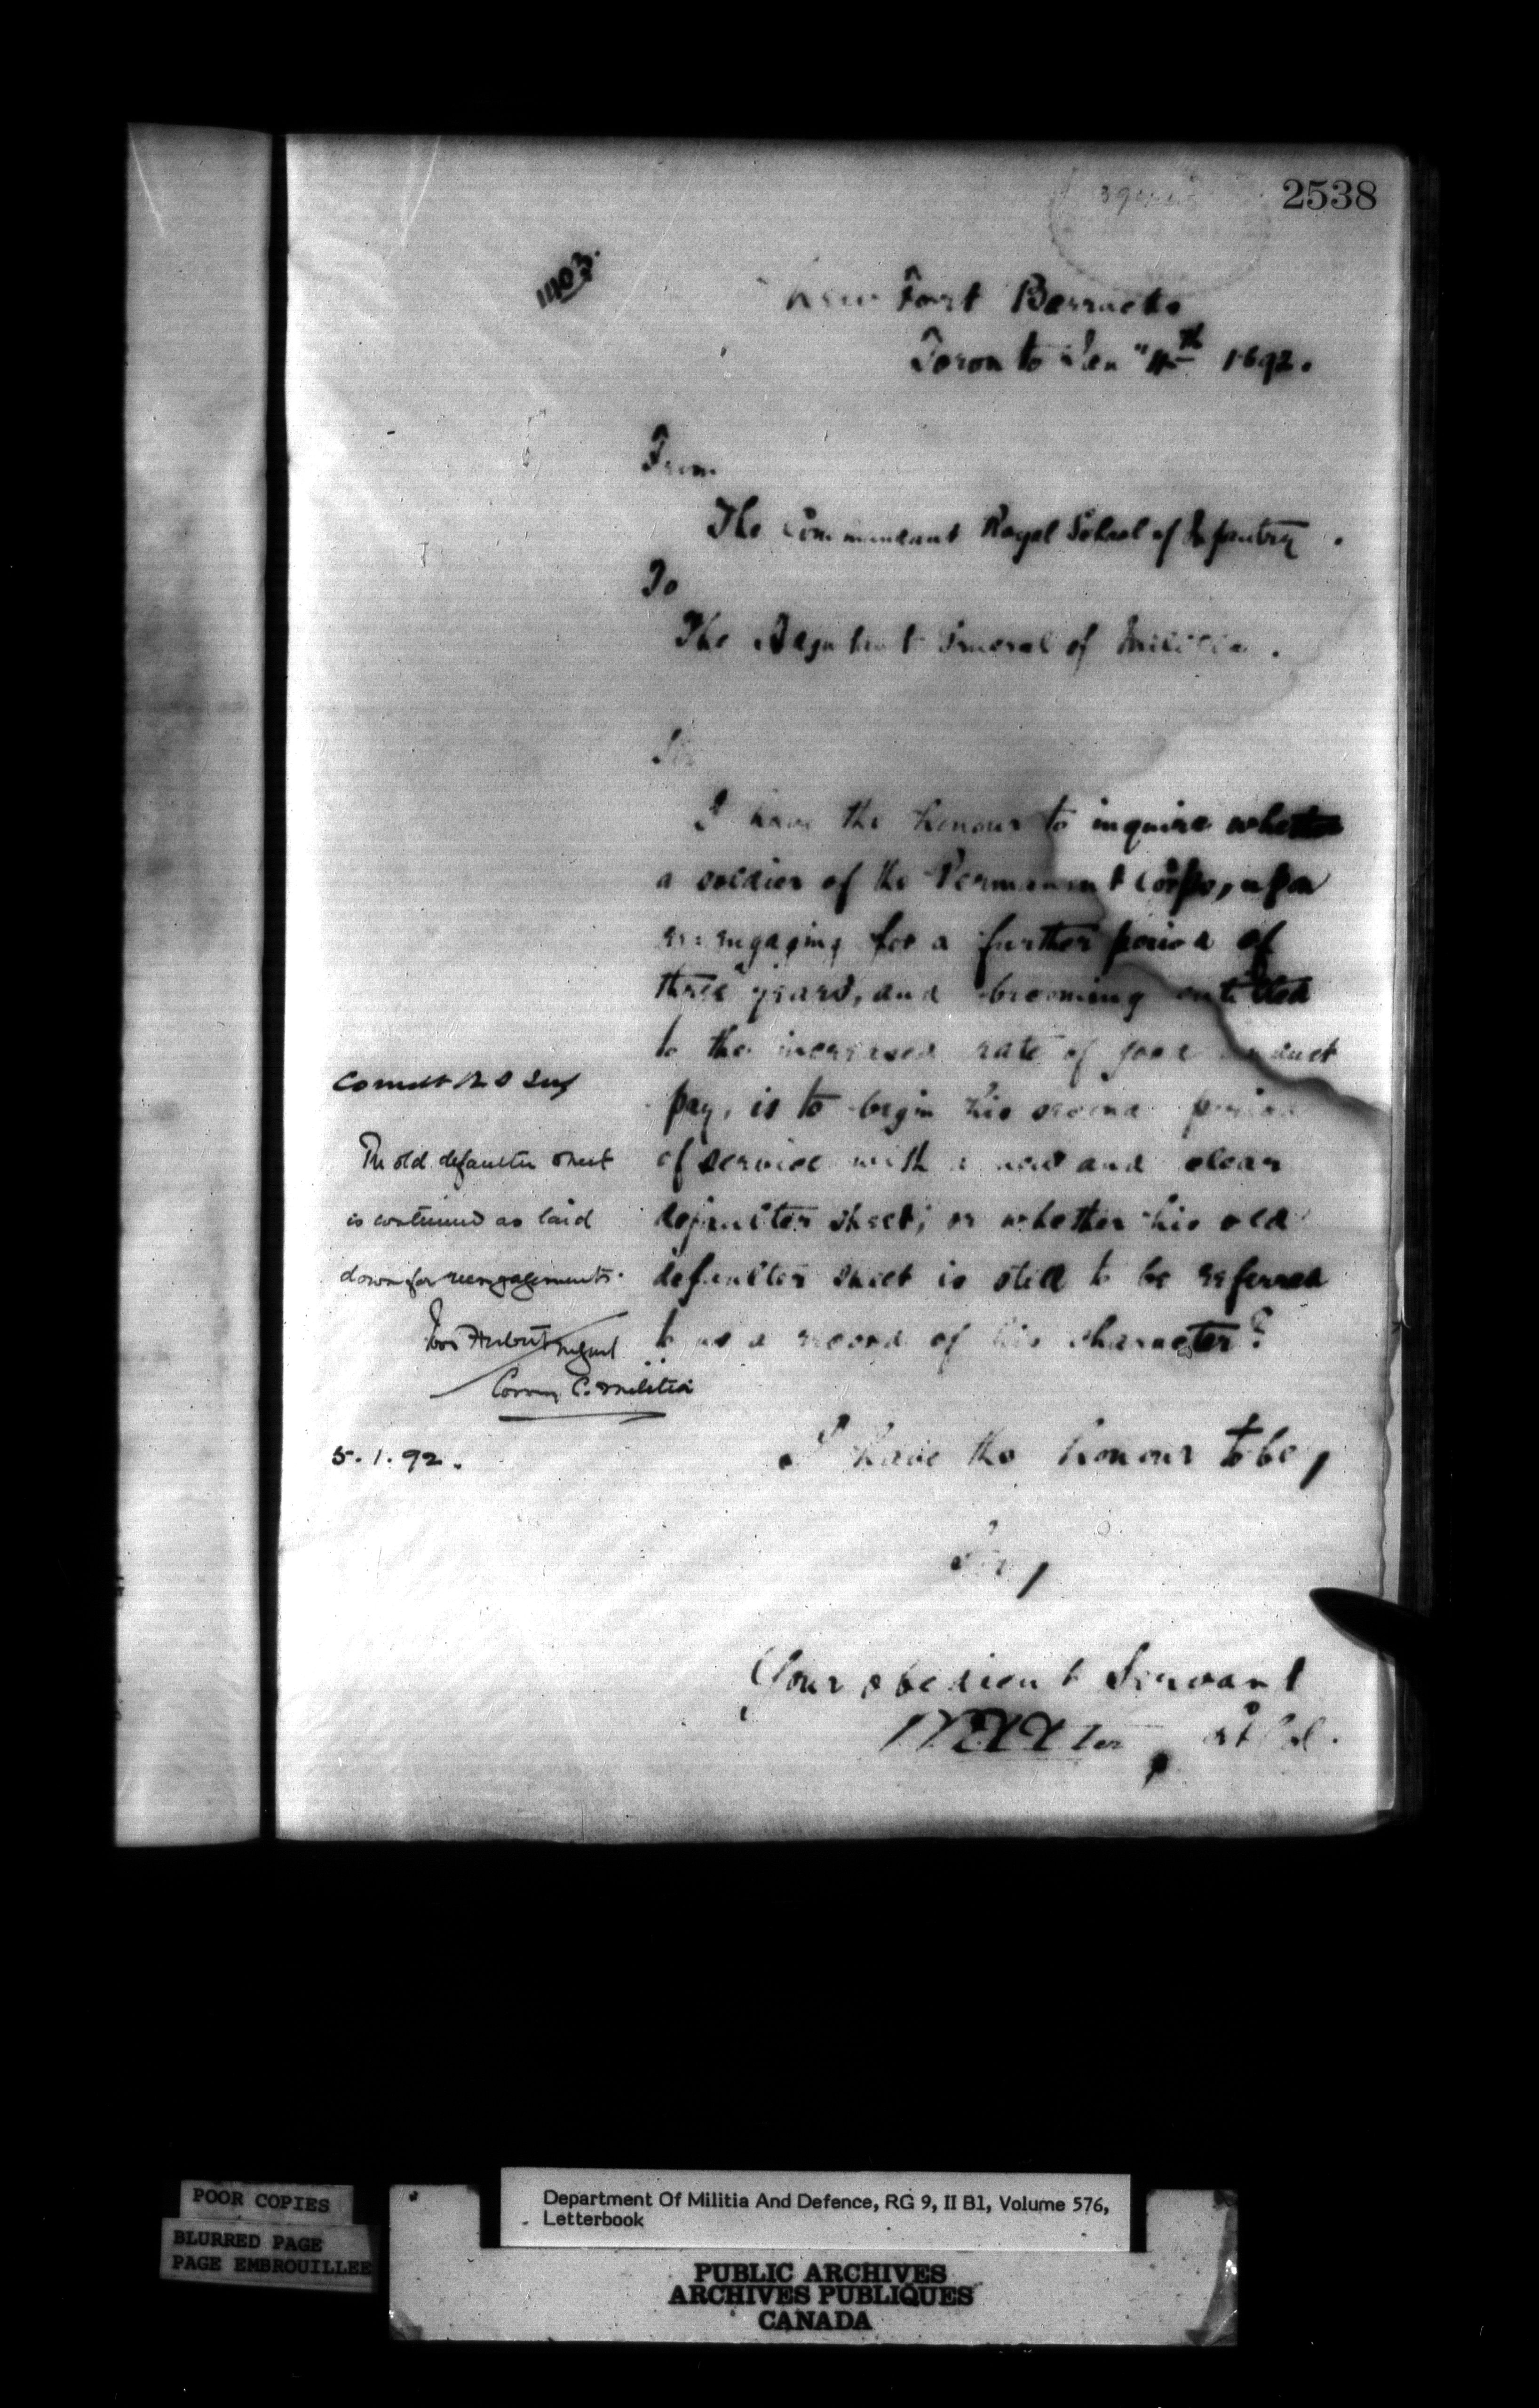 2538
1103.
New Fort Barracks
Toronto Jan 4th 1892.
From
The Commandant Royal School of Infantry.
To
The Adjutant General of Militia.
Sir
I have the honour to inquire whether
a soldier of the Permanent Corps, upon
re-engaging for a further period of
three years, and becoming entitled
to the increased rate of good conduct
pay, is to begin his second period
of service with a new and clear
defaulter sheet; or whether his old
defaulter sheet is still to be referred
to as a record of his character?
I have the honour to be,
Sir,
Your obedient Servant
Lt Col.
Comdt R S Inf
The old defaulter sheet
is continued as laid
down for reengagements.
Ivor Herbert Mgenl
Comg C. Militia
5.1.92.
POOR COPIES
BLURRED PAGE
PAGE EMBROUILLEE
Department Of Militia And Defence, RG 9, II B1, Volume 576,
Letterbook
PUBLIC ARCHIVES
ARCHIVES PUBLIQUES
CANADA